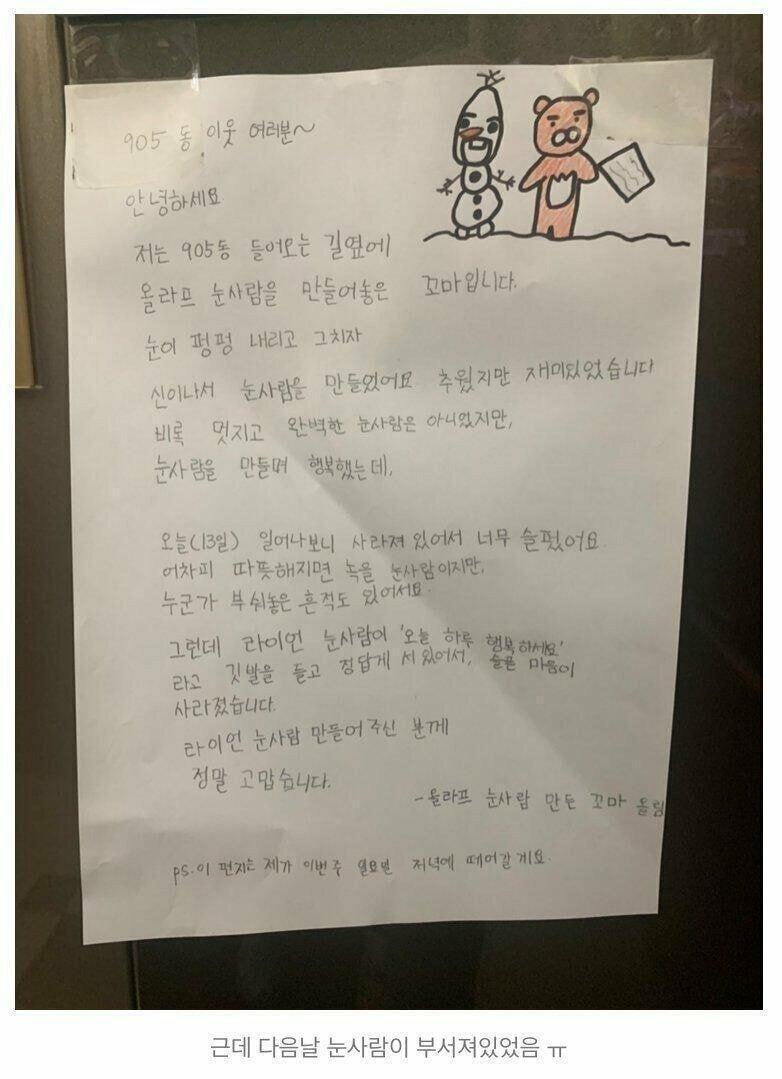 905동 이웃 여러분~
안녕하세요
저는 905동 들어오는 길옆에
올라프 눈사람을 만들어놓은 꼬마입니다.
눈이 펑펑 내리고 그치자
신이나서 눈사람을 만들었어요 추웠지만 재미있었습니다
비록 멋지고 완벽한 눈사람은 아니었지만,
눈사람을 만들며 행복했는데,
오늘(13일) 일어나보니 사라져 있어서 너무 슬펐어요.
어차피 따뜻해지면 녹을 눈사람이지만,
누군가 부숴놓은 흔적도 있어서요.
그런데 라이언 눈사람이 '오늘 하루 행복하세요'
라고 깃발을 들고 정답게 서 있어서, 슬픈 마음이
사라졌습니다.
라이언 눈사람 만들어 주신 분께
정말 고맙습니다.
-올라프 눈사람 만든 꼬마 올림
PS. 이 편지는 제가 이번주 일요일 저녁에 떼어갈게요.
근데 다음날 눈사람이 부서져있었음 ㅠ